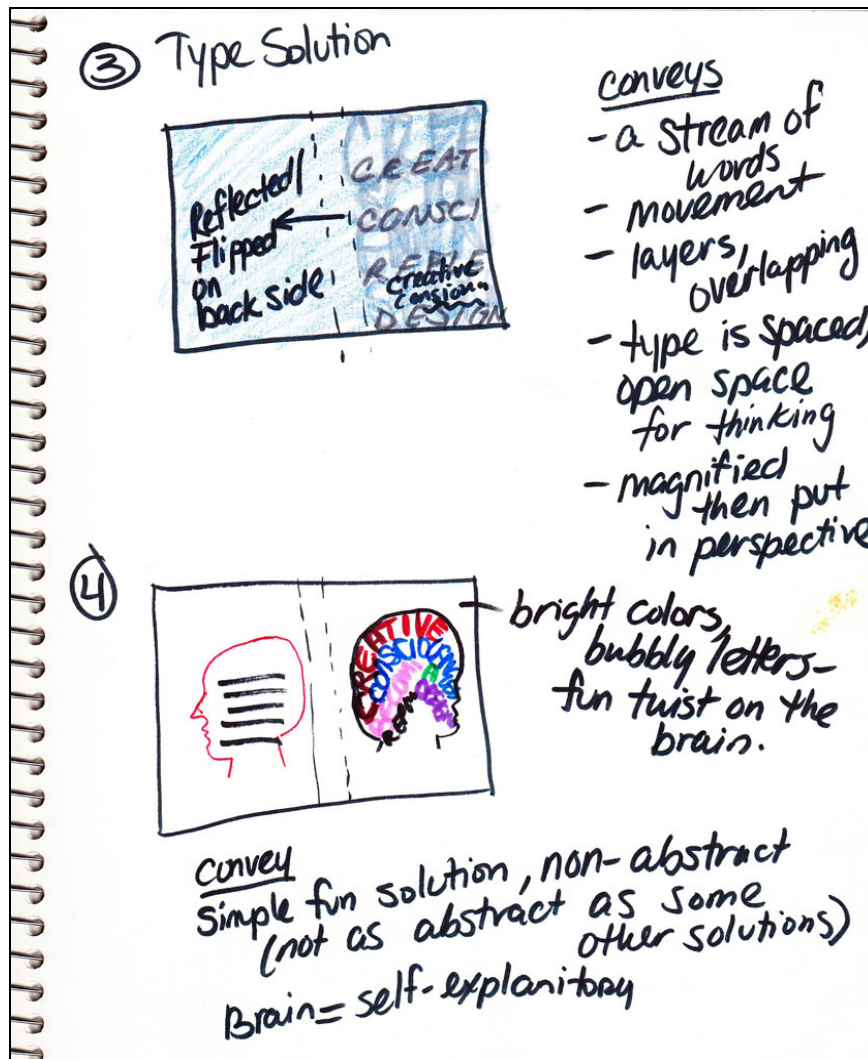 3 Type Solution
Reflected/
Flipped
on
back side
CREAT
CONSCI
creative
DESIGN
conveys
- a stream of
words
- movement
- layers,
overlapping
- type is spaced,
open space
for thinking
- magnified
then put
in perspective
4
CREATIVE
- bright colors,
bubbly letters-
fun twist on the
brain.
convey
simple fun solution, non-abstract
(not as abstract as some
other solutions)
Brain= self-explanitory